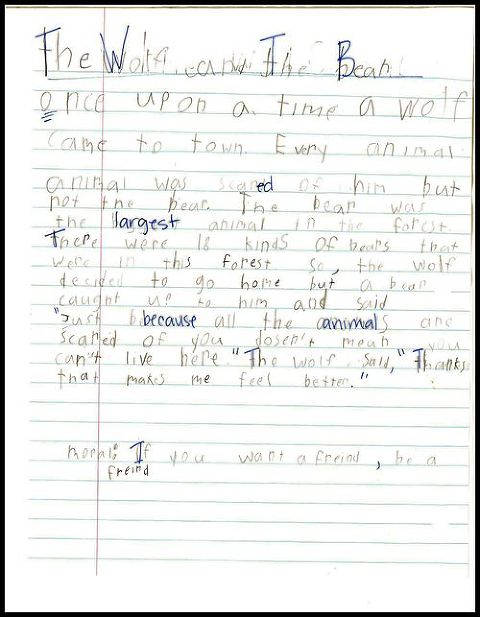 The Wolf and The Bear
once upon a time a wolf
came to town. Every animal
animal was scared of him but
not the bear. The bear was
the largest animal in the forest.
There were 18 kinds of bears that
were in this forest so, the wolf
decided to go home but a bear
caught up to him and said
"Just because all the animals are
scared of you dosen't mean you
can't live here." The wolf said, "Thanks
that makes me feel better."
moral: If you want a freind, be a
freind